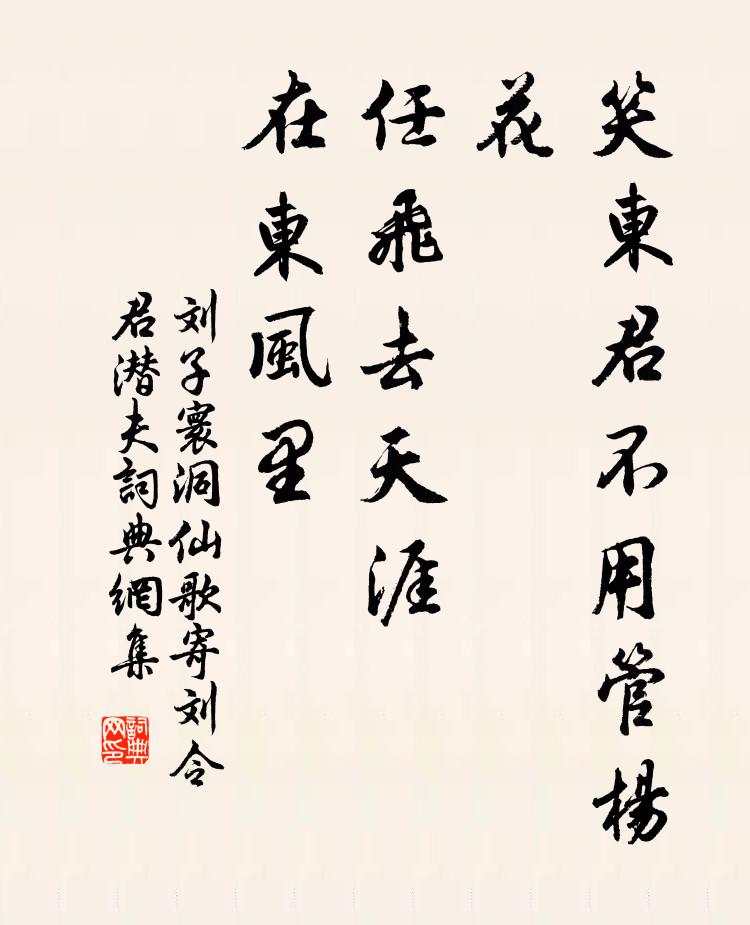 笑東君不用管楊
花
任飛去天涯
在東風里
刘子寰洞仙歌寄刘令
君潜夫詞典網集
詞典
网印